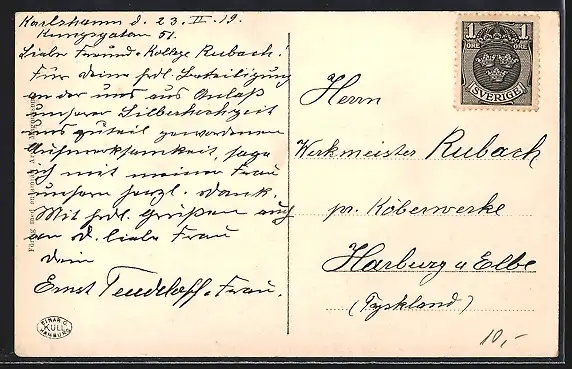 Karlshamn d. 23. II. 19.
Kungsgatan 51.
Liebr Freund u Kollege Rubach!
Für deine frdl. Beteiligung
an der uns aus Anlaß
unserer Silberhochzeit
uns zuteil gewordenen
Aufmerksamkeit, sage
ich mit meiner Frau
unsern herzl. Dank.
Mit frdl. Grüßen auch
an d. liebe Frau
Dein
Ernst u. Frau.
1 ÖRE 1 ÖRE
SVERIGE
Herrn
Werkmeister Rubach
pr. Köberwerke
Harburg u Elbe
(Tyskland)
10,-
EINAR C.
KULL